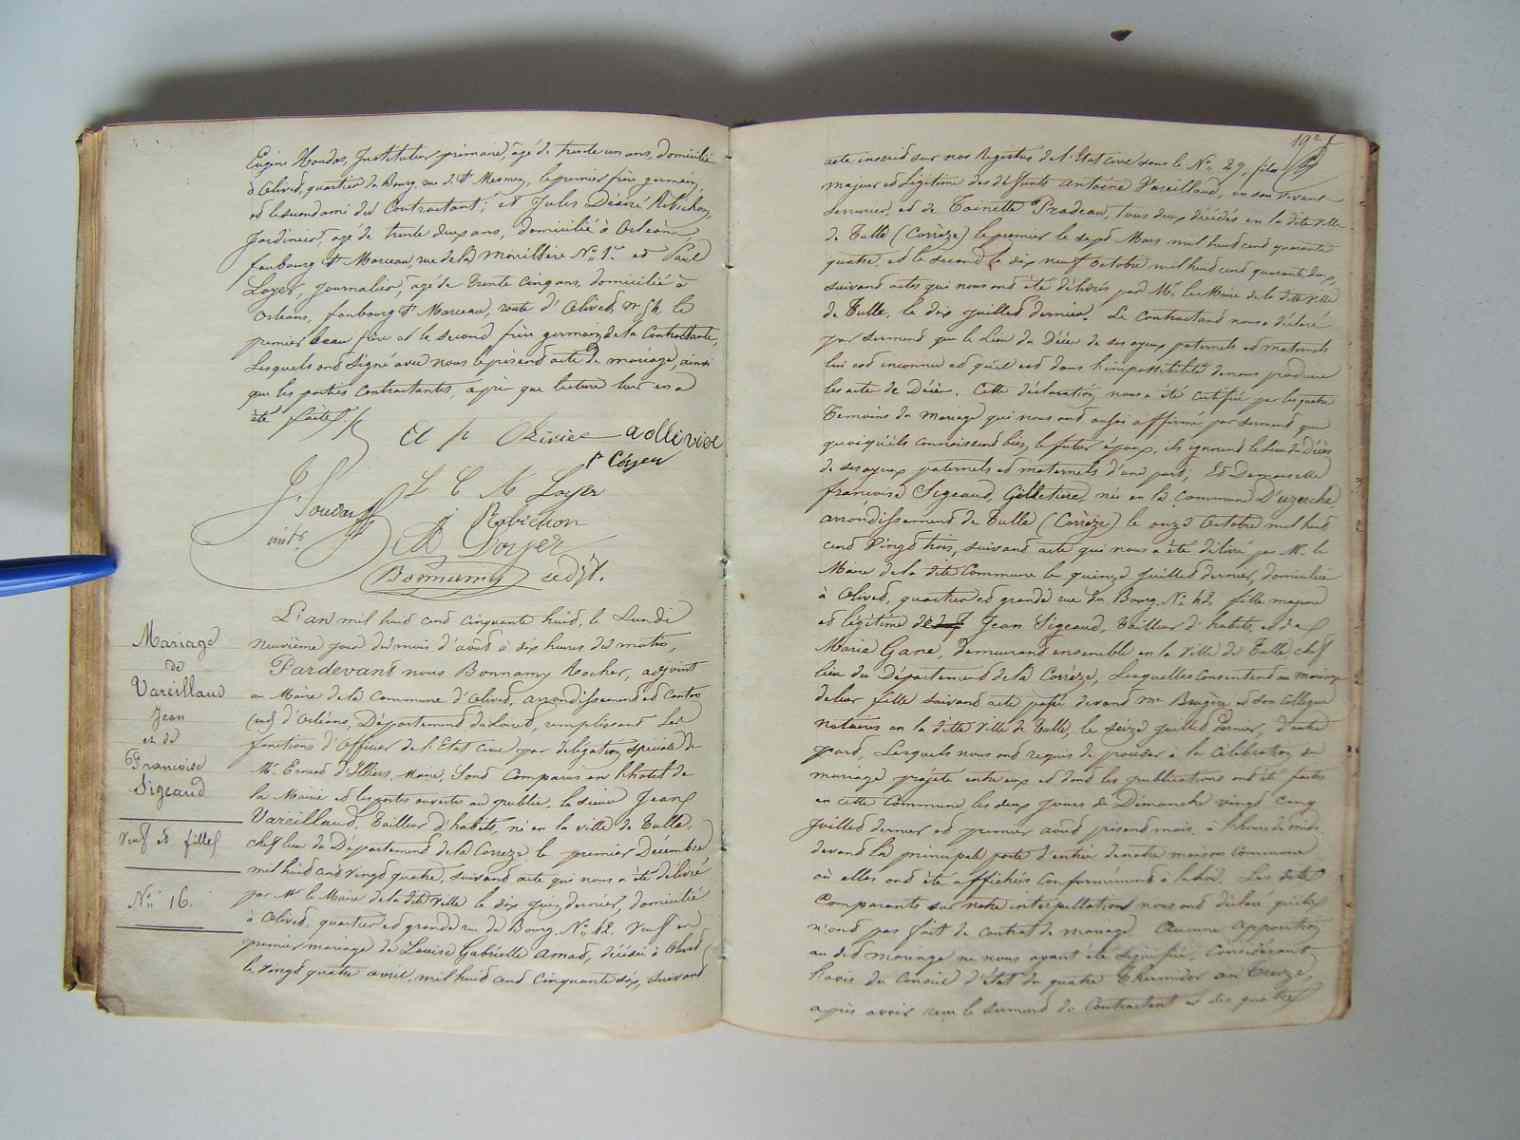 Eugène Houdas, Instituteur primaire, âgé de trente un ans, domicilié
à Olivet, quartier du Bourg, rue de St Mesmin, le premier frère germain,
et le second ami du Contractant; et Jules Désiré Robichon,
Jardinier, âgé de trente deux ans, domicilié à Orléans
faubourg St Marceau, rue de la Mouillère No 1er et Paul
Loyer, journalier, âgé de trente cinq ans, domicilié à
Orléans, faubourg St Marceau, route d'Olivet, no 54 le
premier beau frère et le second frère germain de la Contractante,
Lesquels ont signé avec nous le présent acte de mariage, ainsi
que les parties contractantes, après que lecture leur en a
été faite.
Olivier aollivier
P Loyer
Loyer
inst.
Robichon
Bonnamy adjt.
Mariage
de
Vareillaud
Jean
et de
Françoise
Sigeaud
Veuf et fille
No 16.
L'an mil huit cent cinquante huit, le Lundi
neuvième jour du mois d'août à dix heures du matin,
Pardevant nous Bonnamy Rocher, adjoint
au Maire de la Commune d'Olivet, arrondissement et Canton
(sud) d'Orléans, Département du Loiret, remplissant les
fonctions d'Officier de l'Etat civil par délégation spéciale de
Mr Ernest d'Illiers, Maire, Sont comparus en l'hôtel de
la Mairie et les portes ouvertes au public, le sieur Jean
Vareillaud, tailleur d'habits, né en la ville de Tulle,
chef lieu du Département de la Corrèze le premier Décembre
mil huit cent vingt quatre, suivant acte qui nous a été délivré
par Mr le Maire de la dite ville le dix juin dernier, domicilié
à Olivet, quartier et grande rue du Bourg, No 42, veuf en
premier mariage de Louise Gabrielle Amad, décédée à Olivet
le vingt quatre avril mil huit cent cinquante six, suivant
192
acte inscrit sur nos Registres de l'Etat civil sous le No 29, fils
majeur et légitime des défunts Antoine Vareillaud, en son vivant
serrurier, et de Toinette Pradeau, tous deux décédés en la dite ville
de Tulle (Corrèze) le premier le sept Mars mil huit cent quarante
quatre, et le second le dix neuf octobre mil huit cent quarante deux,
suivant actes qui nous ont été délivrés par Mr le Maire de la dite ville
de Tulle, le dix juillet dernier. Le Contractant nous a déclaré
par serment que le lieu du Décès de ses ayeux paternels et maternels
lui est inconnu et qu'il est dans l'impossibilité de nous produire
les actes de Décès. Cette déclaration nous a été certifiée par les quatre
témoins du Mariage qui nous ont aussi affirmé par serment que
quoiqu'ils connaissent bien le futur époux, ils ignorent le lieu du Décès
de ses ayeux paternels et maternels d'une part; Et Demoiselle
françoise Sigeaud, Giletière, née en la commune D'uzerche,
arrondissement de Tulle (Corrèze) le onze octobre mil huit
cent vingt trois, suivant acte qui nous a été délivré par Mr le
Maire de la dite Commune le quinze juillet dernier, domiciliée
à Olivet, quartier et grande rue du Bourg, No 42 fille majeure
et légitime de Jean Sigeaud, tailleur d'habits, et de
Marie Gane, demeurant ensemble en la ville de Tulle chef
lieu du Département de la Corrèze, Lesquelles consentent au mariage
de leur fille suivant acte passé devant Me Brugère et son collègue
notaires en la dite ville de Tulle, le seize juillet dernier, d'autre
part, Lesquels nous ont requis de procéder à la célébration du
mariage projeté entre eux et dont les publications ont été faites
en cette commune les deux jours de Dimanche vingt cinq
juillet dernier et premier août présent mois, à l'heure de midi
devant la principale porte d'entrée de notre maison Commune
où elles ont été affichées conformément à la loi. Les dits
Comparants sur notre interpellation nous ont déclaré qu'ils
n'ont pas fait de contrat de mariage. Aucune opposition
au dit mariage ne nous ayant été signifiée, Considérant
l'avis du Conseil d'Etat du quatre thermidor an treize,
après avoir reçu le serment du contractant et des quatre